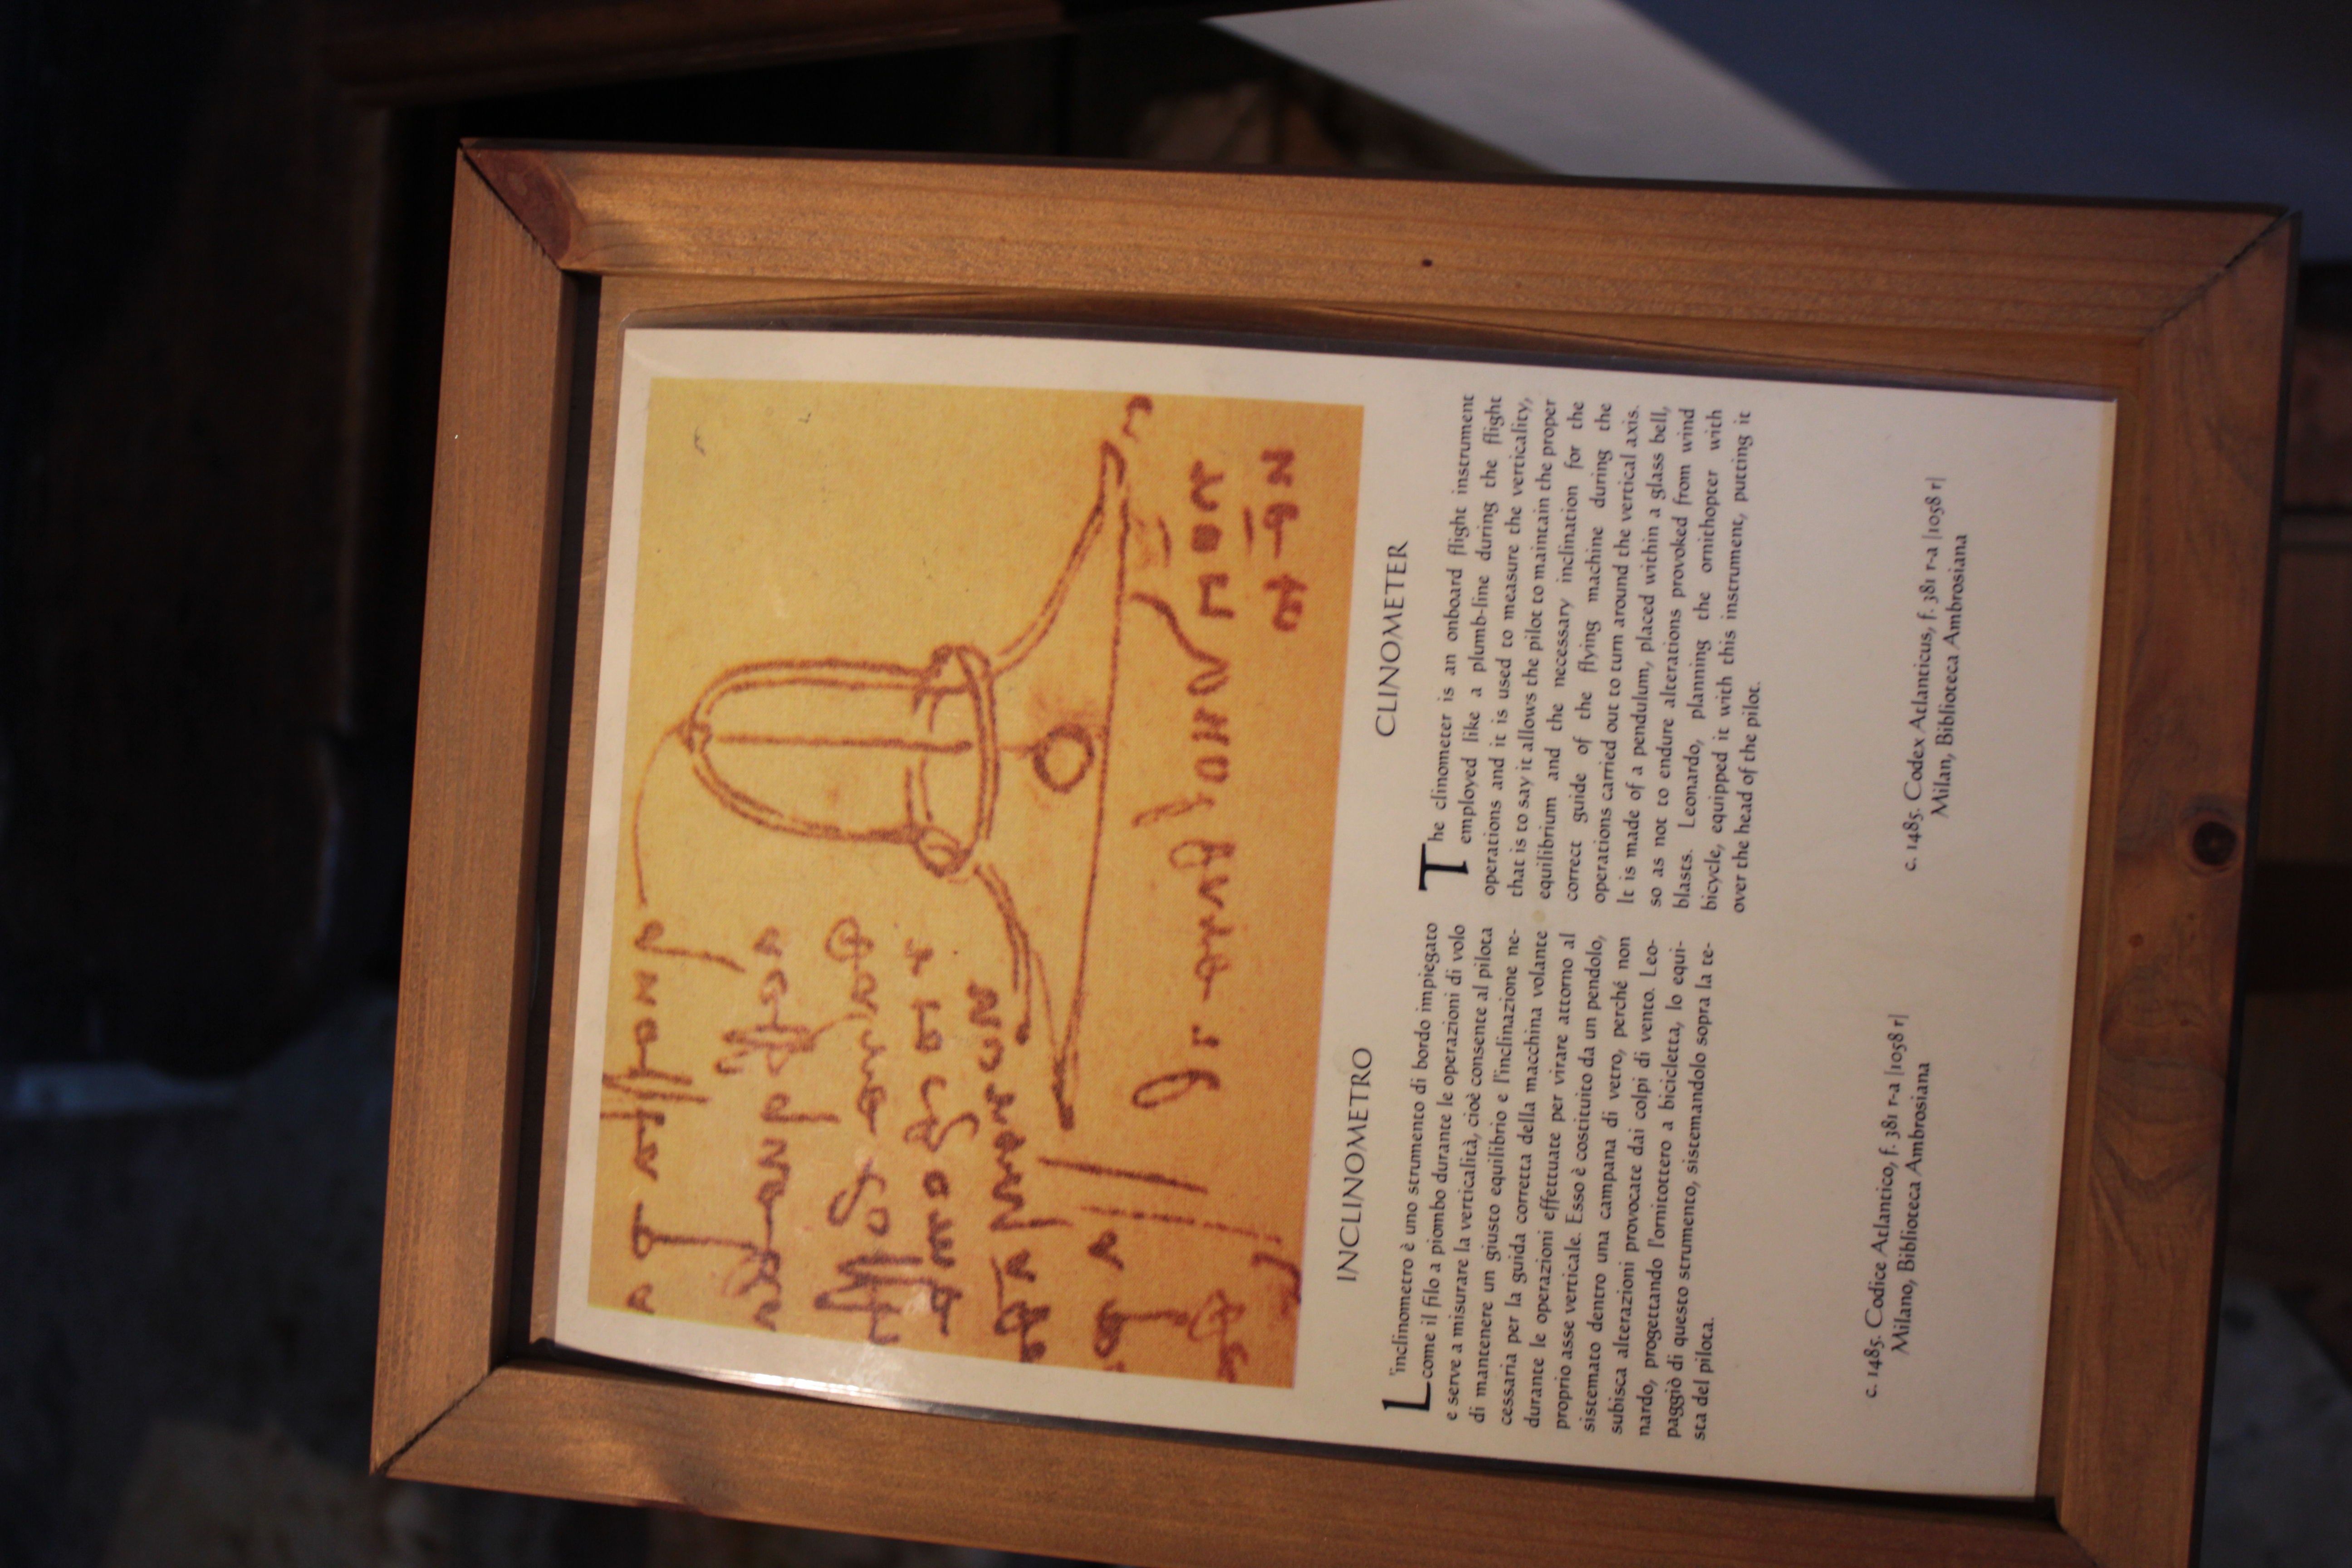 INCLINOMETRO
L'inclinometro è uno strumento di bordo impiegato
come il filo a piombo durante le operazioni di volo
e serve a misurare la verticalità, cioè consente al pilota
di mantenere un giusto equilibrio e l'inclinazione ne-
cessaria per la guida corretta della macchina volante
durante le operazioni effettuate per virare attorno al
proprio asse verticale. Esso è costituito da un pendolo,
sistemato dentro una campana di vetro, perché non
subisca alterazioni provocate dai colpi di vento. Leo-
nardo, progettando l'ornitottero a bicicletta, lo equi-
paggiò di questo strumento, sistemandolo sopra la te-
sta del pilota.
c. 1485. Codice Atlantico, f. 381 r-a |1058 r|
Milano, Biblioteca Ambrosiana
CLINOMETER
The clinometer is an onboard flight instrument
employed like a plumb-line during the flight
operations and it is used to measure the verticality,
that is to say it allows the pilot to maintain the proper
equilibrium and the necessary inclination for the
correct guide of the flying machine during the
operations carried out to turn around the vertical axis.
It is made of a pendulum, placed within a glass bell,
so as not to endure alterations provoked from wind
blasts. Leonardo, planning the ornithopter with
bicycle, equipped it with this instrument, putting it
over the head of the pilot.
c. 1485. Codex Atlanticus, f. 381 r-a |1058 r|
Milan, Biblioteca Ambrosiana